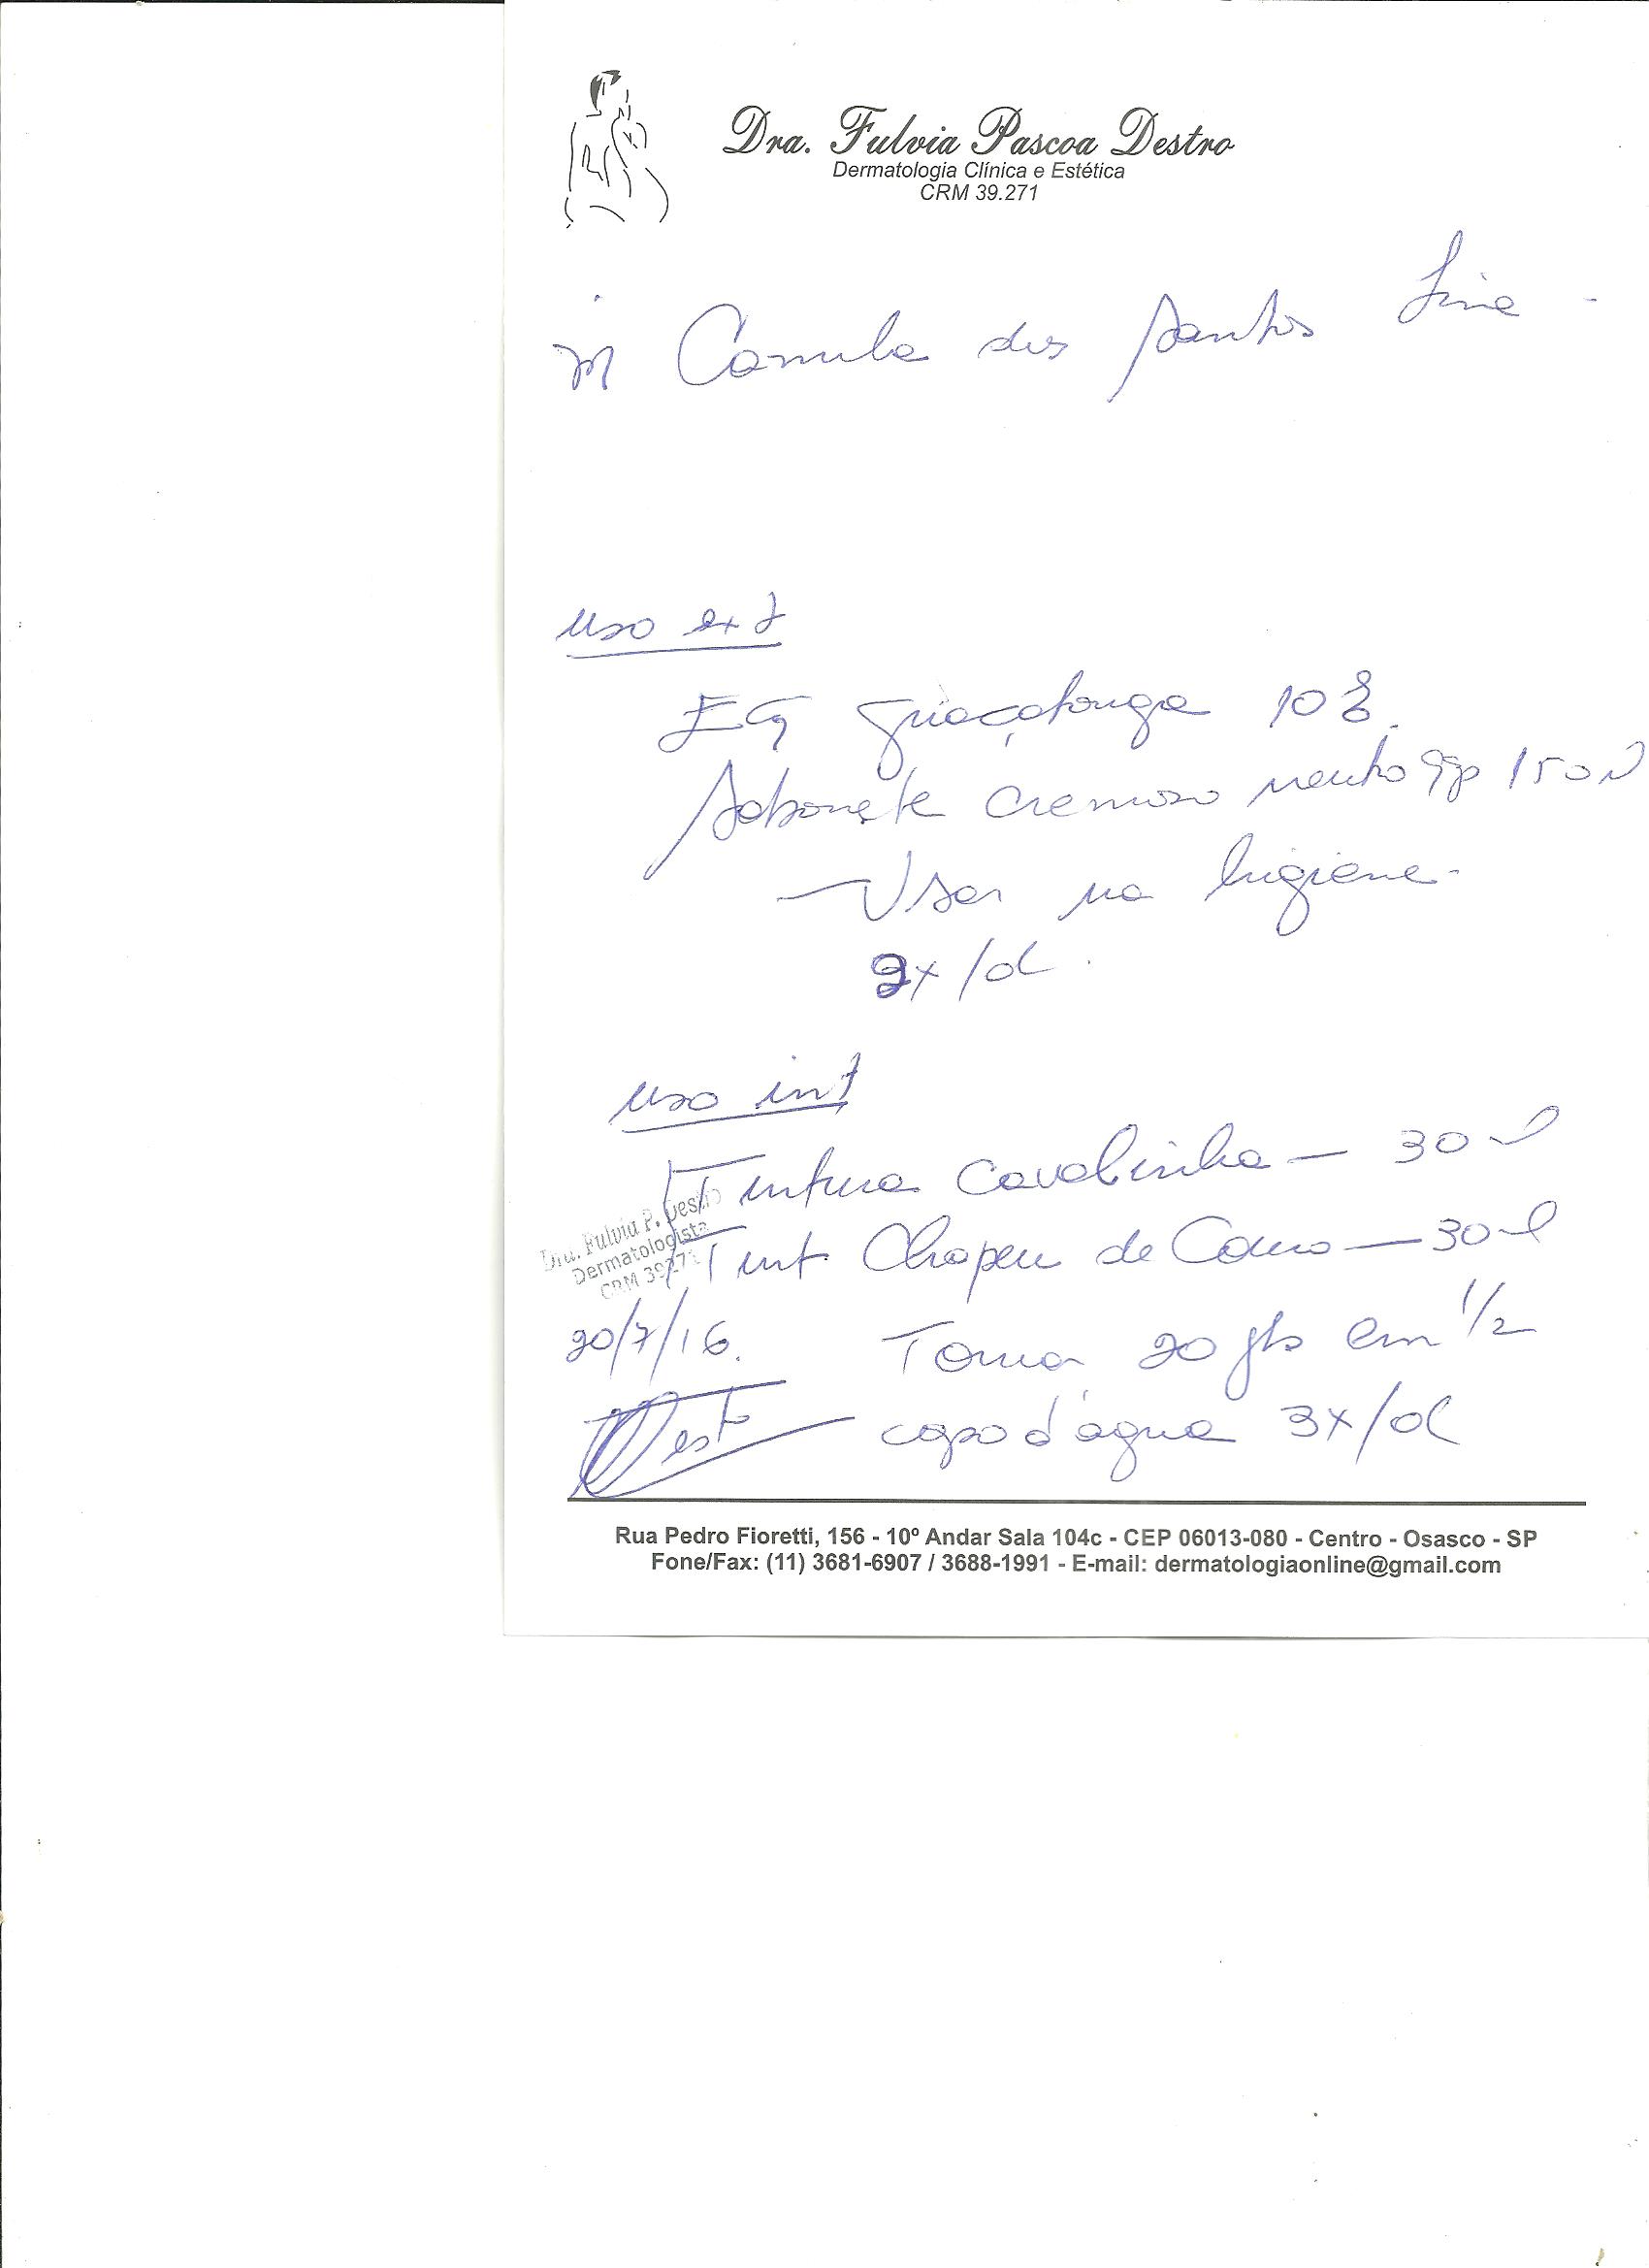 Dra. Fulvia Pascoa Destro
Dermatologia Clínica e Estética
CRM 39.271
Camila dos Santos
uso ext
EG guaçatonga 10%
Sabonete cremoso neutro qsp 150
Usar na higiene
2x/d.
uso int
Tintura cavalinha — 30
Tint Chapeu de Couro — 30
Dra. Fulvia P. Destro
Dermatologista
CRM 39271
20/7/16.
Tomar 20 gts em 1/2
copo d'água 3x/d
Rua Pedro Fioretti, 156 - 10º Andar Sala 104c - CEP 06013-080 - Centro - Osasco - SP
Fone/Fax: (11) 3681-6907 / 3688-1991 - E-mail: dermatologiaonline@gmail.com